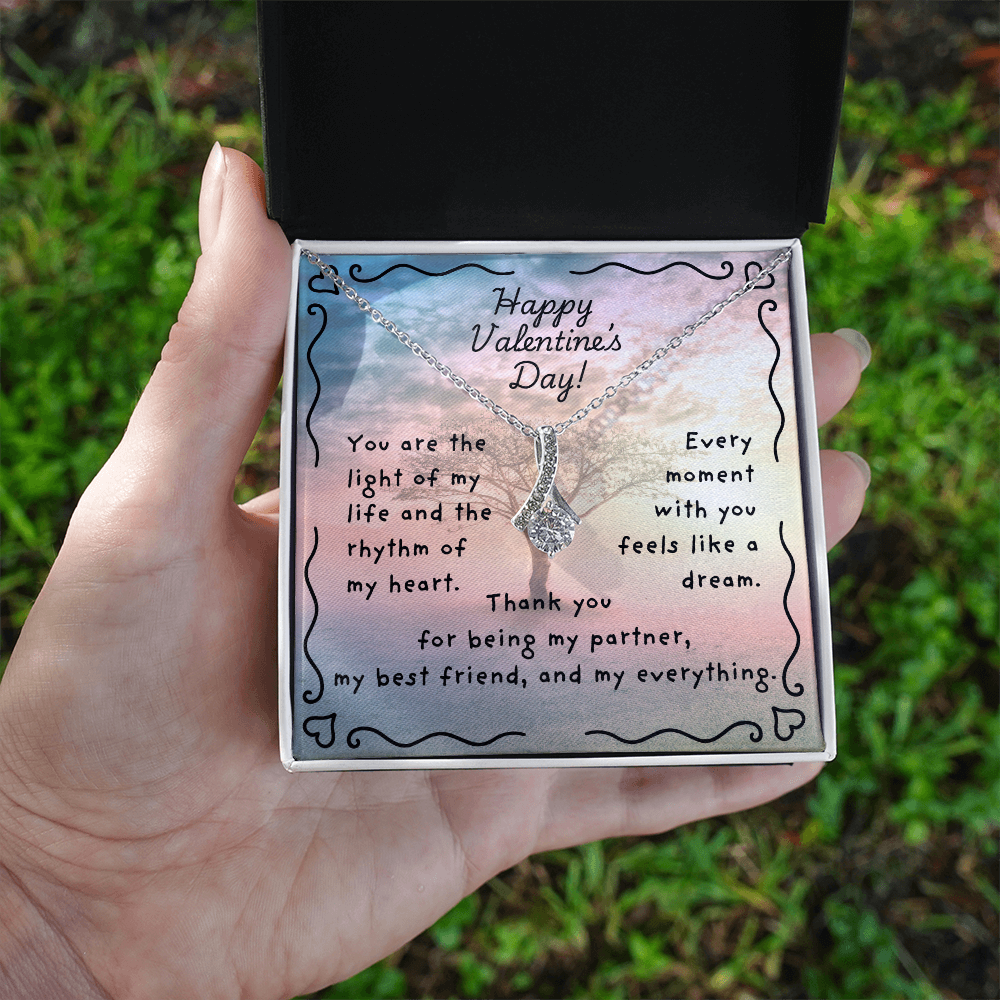 Happy
Valentine's
Day!
You are the
light of my
life and the
rhythm of
my heart.
Every
moment
with you
feels like a
dream.
Thank you
for being my partner,
my best friend, and my everything.